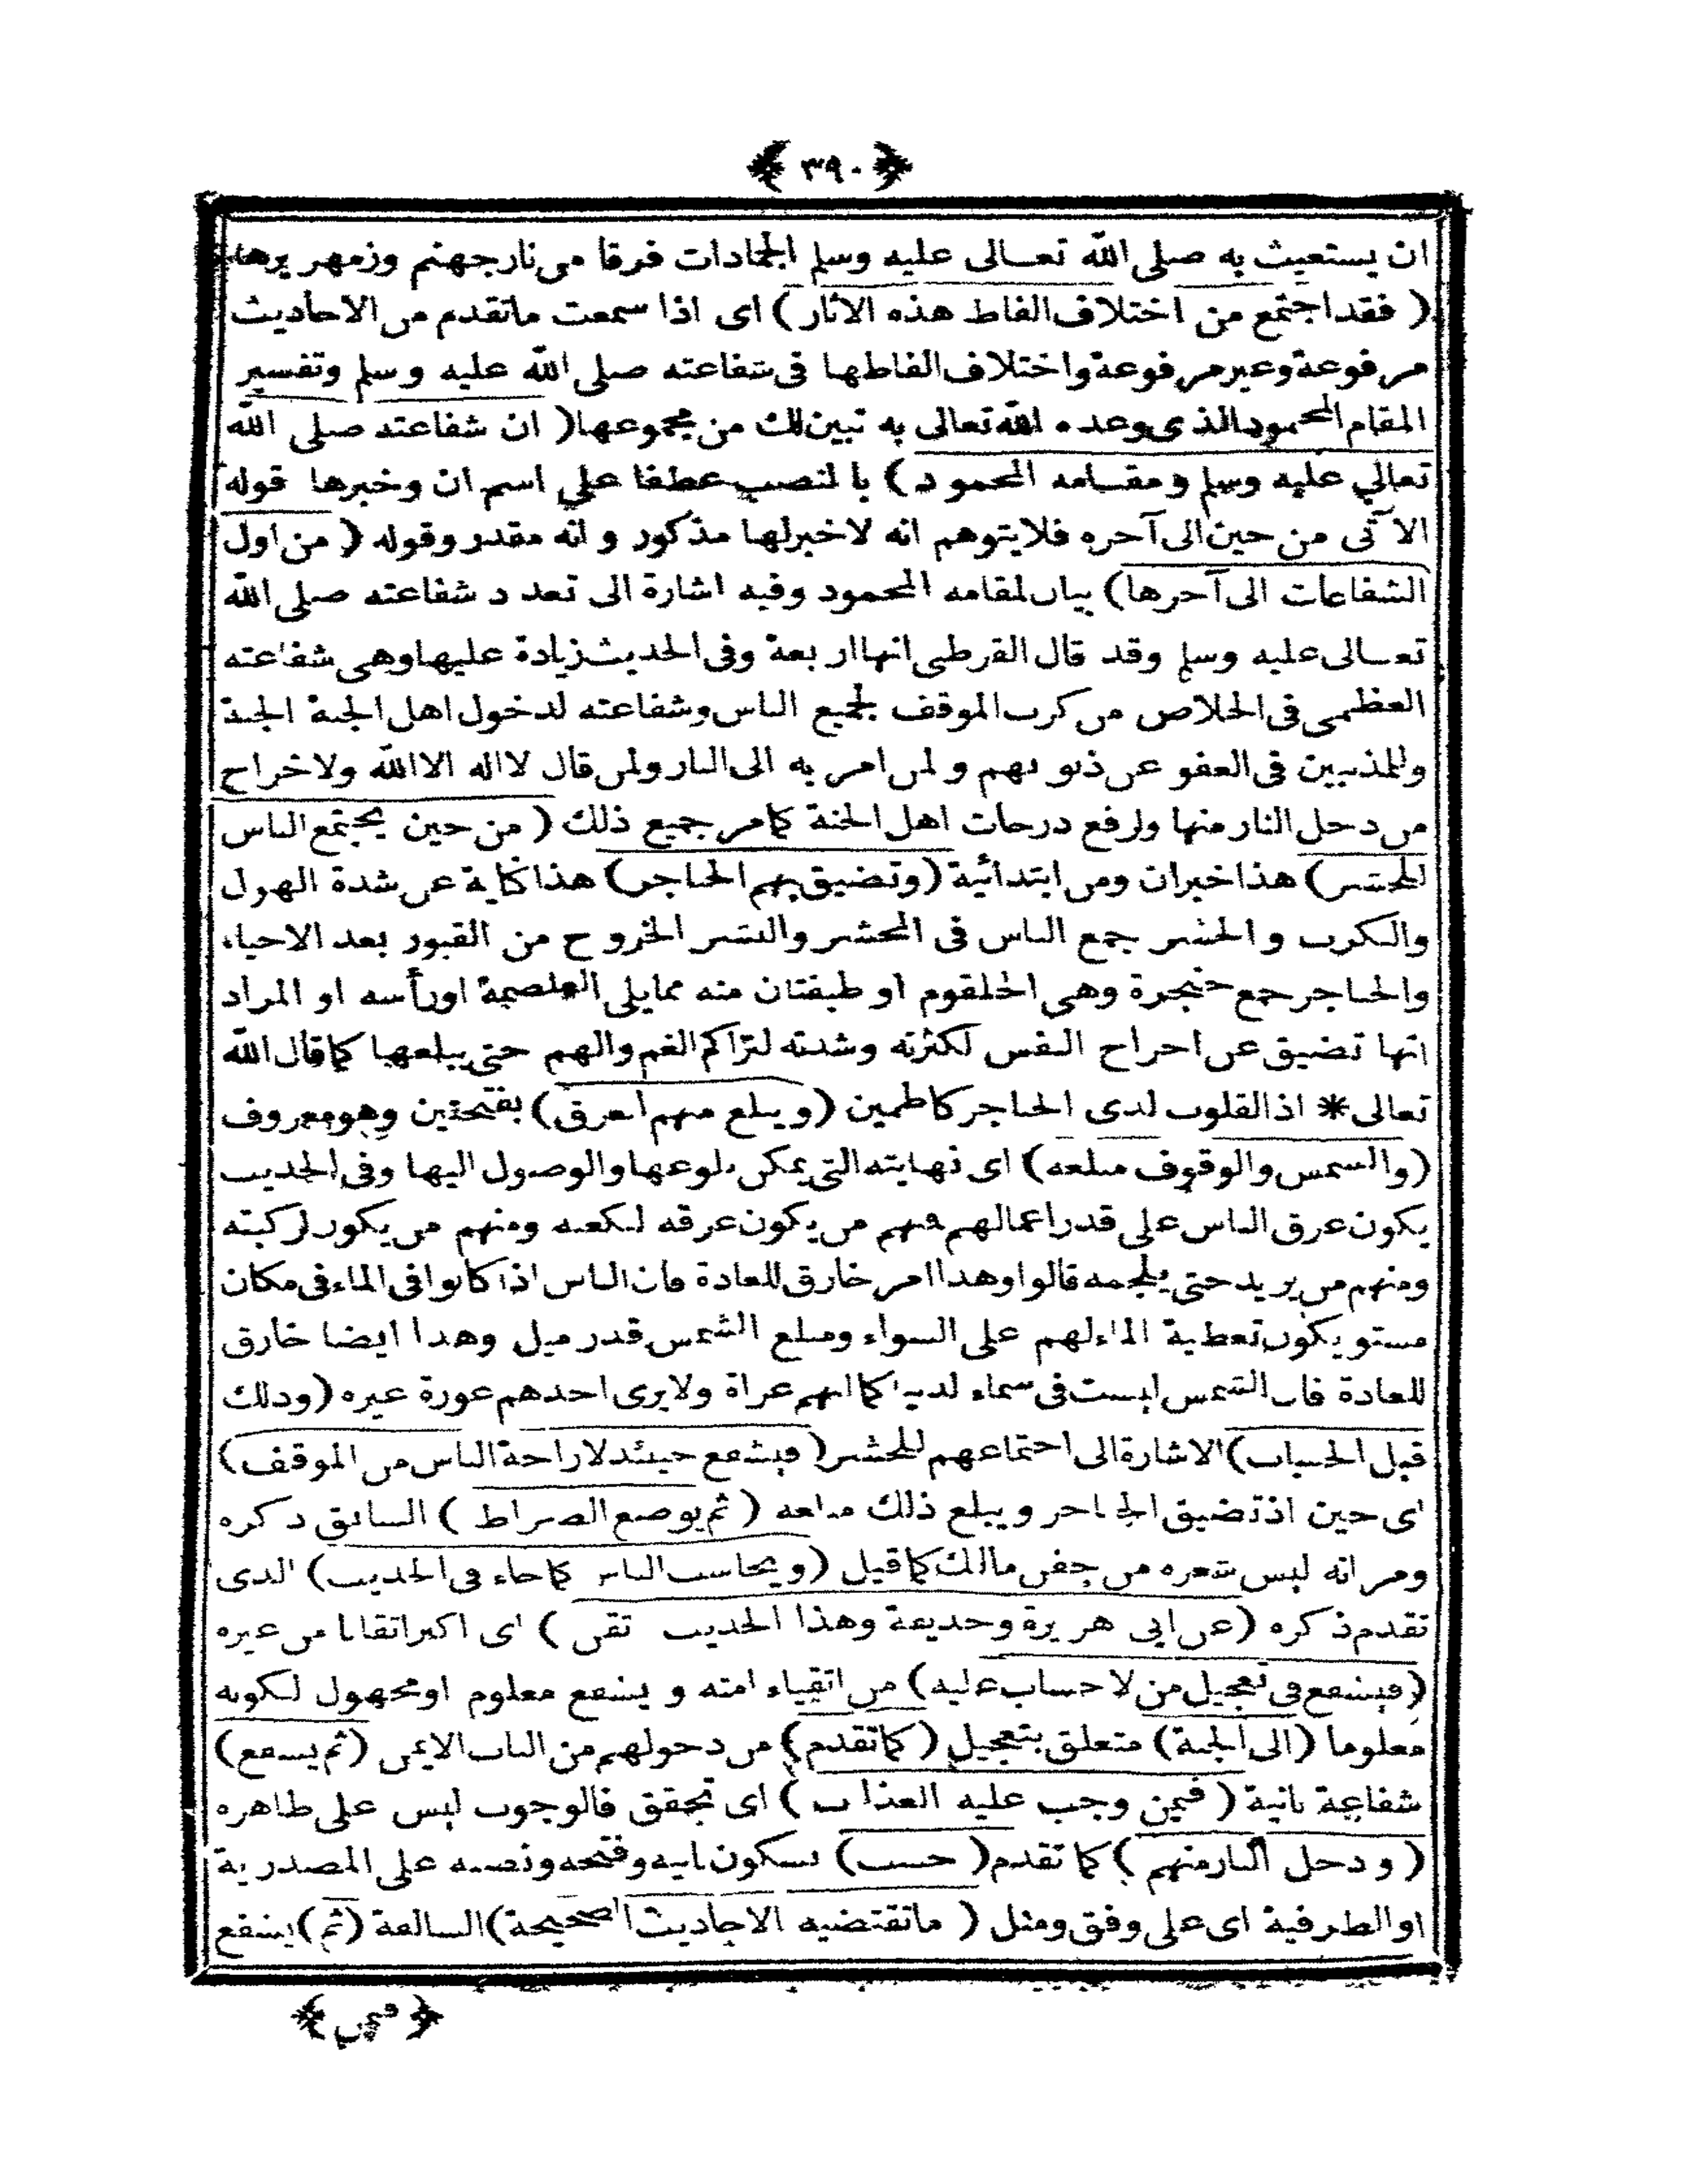 ﴿ ٣٩٠ ﴾
ان يستغيث به صلى الله تعـالى عليه وسلم الجمادات فرقا من نار جهنم وزمهريرها
( فقد اجتمع من اختلاف الفاظ هذه الآثار ) اى اذا سمعت ماتقدم من الاحاديث
مرفوعة وغير مرفوعة واختلاف الفاظها فى شفاعته صلى الله عليه وسلم وتفسير
المقام المحمود الذى وعده الله تعالى به تبين لك من مجموعها ( ان شفاعته صلى الله
تعالى عليه وسلم ومقـامه المحمود ) بالنصب عطفا على اسم ان وخبرها قوله
الآتى من حين الى آخره فلايتوهم انه لاخبرلها مذكور وانه مقدر وقوله ( من اول
الشفاعات الى آخرها ) بيان لمقامه المحمود وفيه اشارة الى تعدد شفاعته صلى الله
تعـالى عليه وسلم وقد قال القرطبى انها اربعة وفى الحديث زيادة عليها وهى شفاعته
العظمى فى الخلاص من كرب الموقف لجميع الناس وشفاعته لدخول اهل الجنة الجنة
وللمذنبين فى العفو عن ذنوبهم ولمن امر به الى النار ولمن قال لااله الاالله ولاخراج
من دخل النار منها ولرفع درجات اهل الجنة كمامر جميع ذلك ( من حين يجتمع الناس
للحشر ) هذا خبران ومن ابتدائية ( وتضيق بهم الحناجر ) هذا كناية عن شدة الهول
والكرب والحشر جمع الناس فى المحشر والنشر الخروج من القبور بعد الاحياء
والحناجر جمع حنجرة وهى الحلقوم او طبقتان منه ممايلى الغلصمة اورأسه او المراد
انها تضيق عن اخراج النفس لكثرته وشدته لتراكم الغم والهم حتى يبلعها كماقال الله
تعالى * اذ القلوب لدى الحناجر كاظمين ( ويبلغ منهم العرق ) بفتحتين وهو معروف
( والشمس والوقوف مبلغه ) اى نهايته التى يمكن بلوغها والوصول اليها وفى الحديث
يكون عرق الناس على قدر اعمالهم فمنهم من يكون عرقه لكعبه ومنهم من يكون لركبته
ومنهم من يزيد حتى يلجمه قالوا وهذا امر خارق للعادة فان الناس اذا كانوا فى الماء فى مكان
مستو يكون تغطية الماء لهم على السواء ومبلغ الشمس قدر ميل وهذا ايضا خارق
للعادة فان الشمس ليست فى سماء لدنيا كما انهم عراة ولايرى احدهم عورة غيره ( وذلك
قبل الحساب ) الاشارة الى اجتماعهم للحشر ( فيشفع حينئذ لاراحة الناس من الموقف )
اى حين اذ تضيق الحناجر ويبلغ ذلك مبلغه ( ثم يوضع الصراط ) السابق ذكره
ومر انه ليس شعره من جفن مالك كماقيل ( ويحاسب الناس كماجاء فى الحديث ) الذى
تقدم ذكره ( عن ابى هريرة وحذيفة وهذا الحديث تقن ) اى اكثر اتقانا من غيره
( فيشفع فى تعجيل من لاحساب عليه ) من اتقياء امته ويشفع معلوم او مجهول لكونه
معلوما ( الى الجنة ) متعلق بتعجيل ( كماتقدم ) من دخولهم من الباب الايمن ( ثم يشفع )
شفاعة ثانية ( فيمن وجب عليه العذاب ) اى تحقق فالوجوب ليس على ظاهره
( ودخل النار منهم ) كما تقدم ( حسب ) بسكون ثانيه وفتحه ونصبه على المصدرية
او الظرفية اى على وفق ومثل ( ماتقتضيه الاحاديث الصحيحة ) السالفة ( ثم ) يشفع
﴿ فيمن ﴾